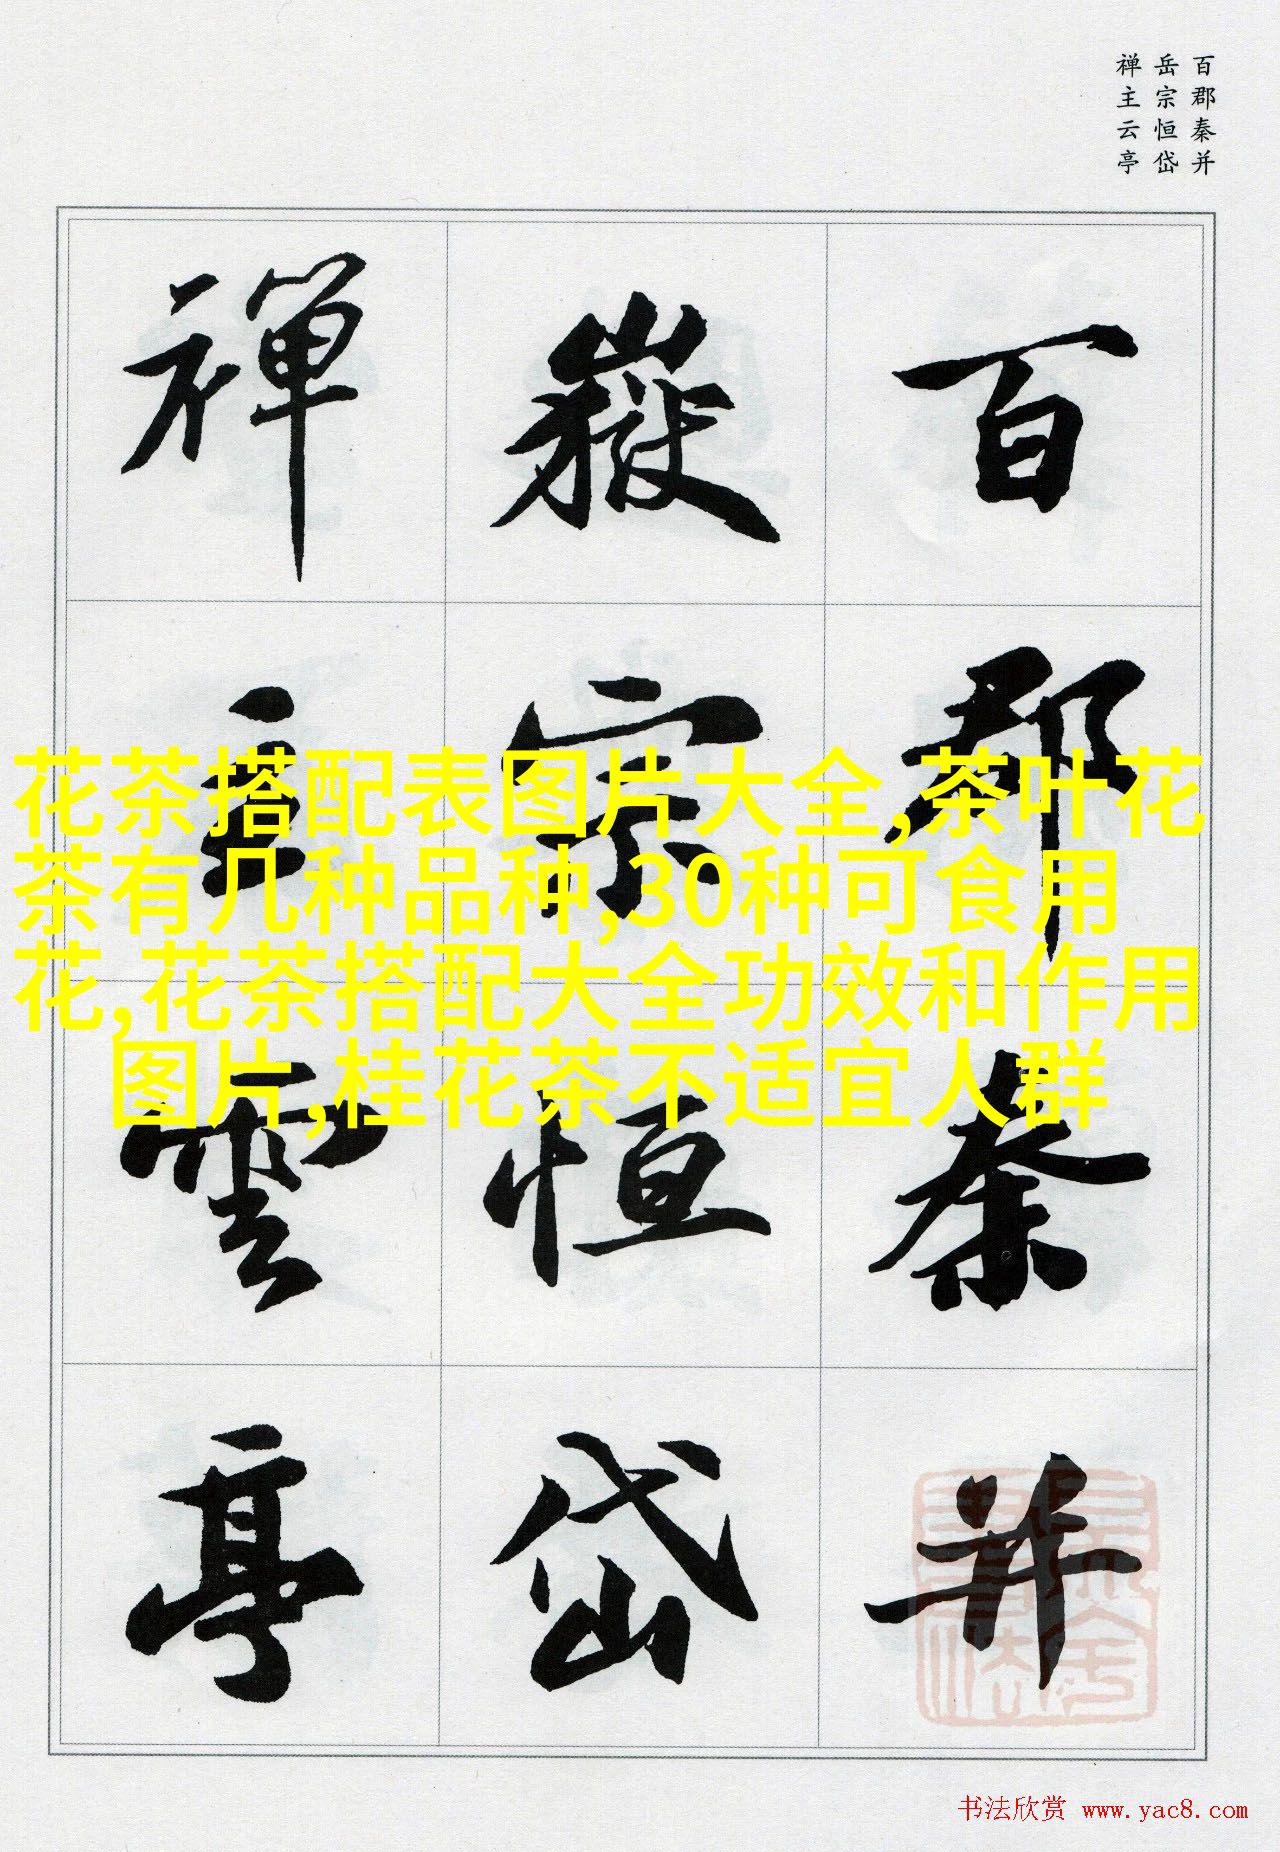 百郡秦并
岳宗恒岱
禅主云亭
百郡秦并
嶽宗恒岱
禅主雲亭
花茶搭配表图片大全,茶叶花
茶有几种品种,30种可食用
花,花茶搭配大全功效和作用
图片,桂花茶不适宜人群
书法欣赏 www.yac8.com